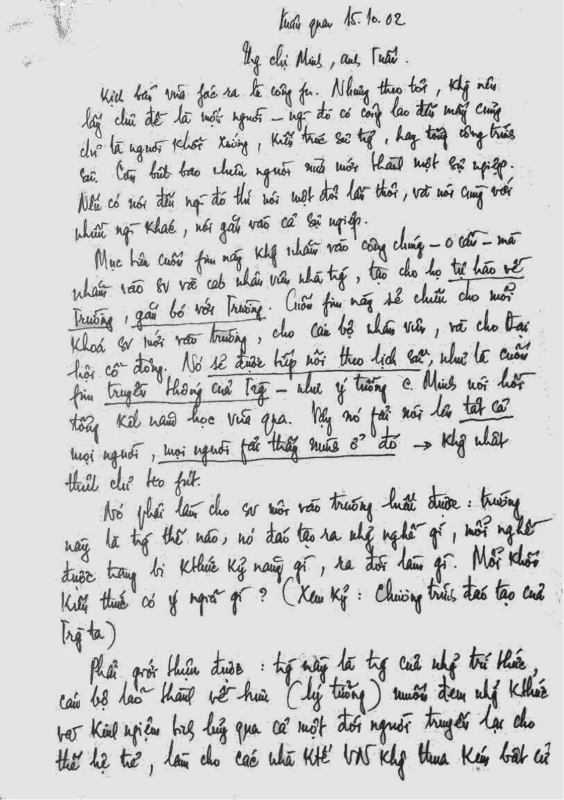 Xuân quan 15.10.02
Thg chị Minh, anh Tuấn.
Kịch bản vừa fác ra là công fu. Nhưng theo tôi, Khg nên
lấy chủ đề là một người – ngi đó có công lao đến mấy cũng
chỉ là người khởi xướng, kiến trúc sư trg, hay tổng công trình
sư. Cần biết bao nhiêu người nữa mới thành một sự ngiệp.
Nếu có nói đến ngi đó thì nói một đôi lần thôi, và nói cùng với
nhiều ngi khác, nói gắn vào cả sự ngiệp.
Mục tiêu cuốn fim này Khg nhằm vào công chúng – 0 cần – mà
nhằm vào sv và cab nhân viên nhà trg, tạo cho họ tự hào về
Trường, gắn bó với Trường. Cuốn fim này sẽ chiếu cho mỗi
Khoá sv mới vào trường, cho cán bộ nhân viên, và cho Đại
hội cổ đông. Nó sẽ được tiếp nối theo lịch sử, như là cuốn
fim truyền thống của Trg – như ý tưởng c. Minh nói hồi
tổng kết năm học vừa qua. Vậy nó fải nói lên tất cả
mọi người, mọi người fải thấy mình ở đó → Khg nhất
thiết chỉ 60 fút.
Nó phải làm cho sv mới vào trường hiểu được: trường
này là trg thế nào, nó đào tạo ra nhg nghề gì, mỗi nghề
được trang bị Kthức Kỹ năng gì, ra đời làm gì. Mỗi Khối
Kiến thức có ý ngiã gì? (Xem Kỹ: Chương trình đào tạo của
Trg ta)
Phải giới thiệu được: trg này là trg của nhg trí thức,
cán bộ lão thành về hưu (lý tưởng) muốn đem nhg Kthức
và Kinh ngiệm tích luỹ qua cả một đời người truyền lại cho
thế hệ trẻ, làm cho các nhà Ktế VN Khg thua Kém bất cứ